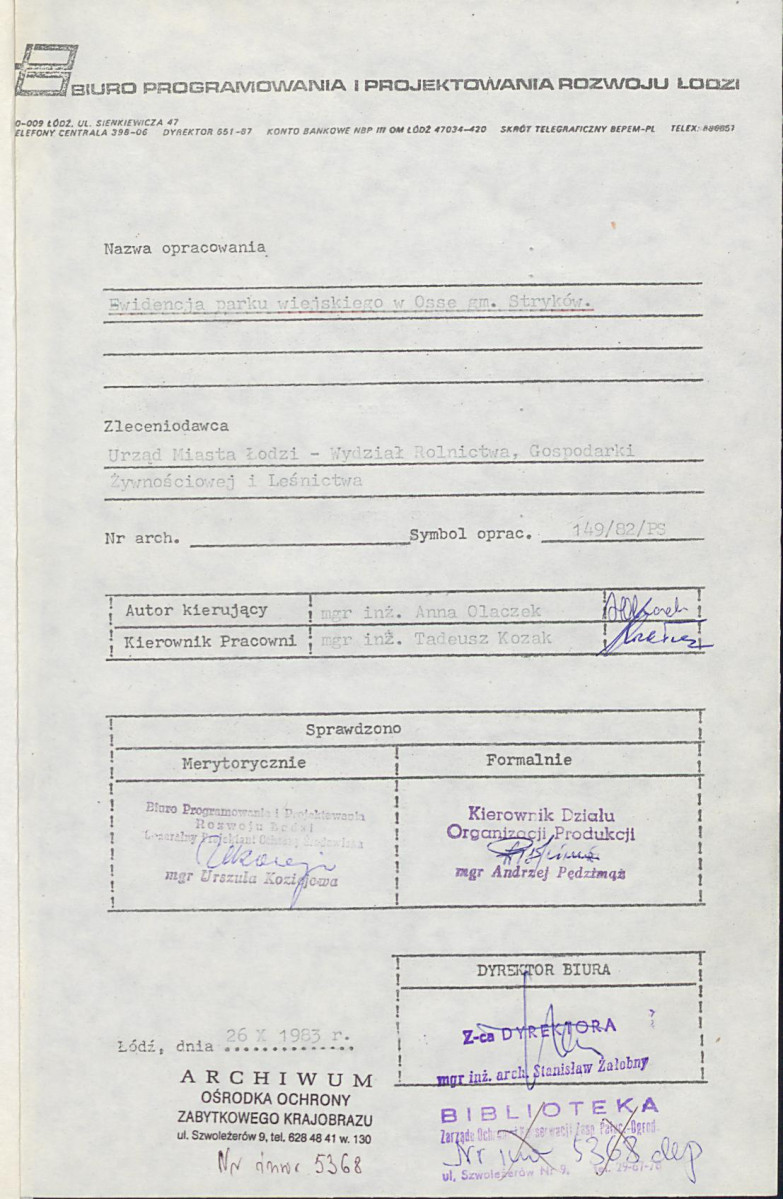 BIURO PROGRAMOWANIA I PROJEKTOWANIA ROZWOJU ŁODZI
0-009 ŁÓDŹ, UL. SIENKIEWICZA 47
ELEFONY CENTRALA 398-06 DYREKTOR 651-87 KONTO BANKOWE NBP III OM ŁÓDŹ 47034-420 SKRÓT TELEGRAFICZNY BEPEM-PL TELEX:
Nazwa opracowania
Ewidencja parku wiejskiego w Osse gm. Stryków.
Zleceniodawca
Urząd Miasta Łodzi - Wydział Rolnictwa, Gospodarki
Żywnościowej i Leśnictwa
Nr arch. Symbol oprac. 149/82/PS
Autor kierujący mgr inż. Anna Olaczek
Kierownik Pracowni mgr inż. Tadeusz Kozak
Sprawdzono
Merytorycznie Formalnie
Biuro Programowania i Projektowania
Rozwoju Łodzi
mgr Urszula
Kierownik Działu
Organizacji Produkcji
mgr Andrzej Pędzimąż
DYREKTOR BIURA
Z-ca DYREKTORA
mgr inż. arch. Stanisław Żałobny
Łódź, dnia 26 X 1983 r.
ARCHIWUM
OŚRODKA OCHRONY
ZABYTKOWEGO KRAJOBRAZU
ul. Szwoleżerów 9, tel. 628 48 41 w. 130
Nr inwr 5368
BIBLIOTEKA
Nr inw 5368 dep
ul. Szwoleżerów Nr 9,